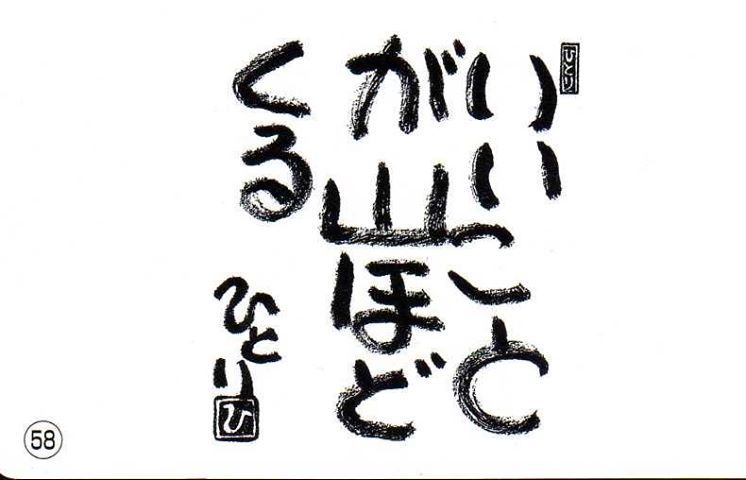 ひとり
いいこと
が山ほど
くる
ひとり
ひ
58